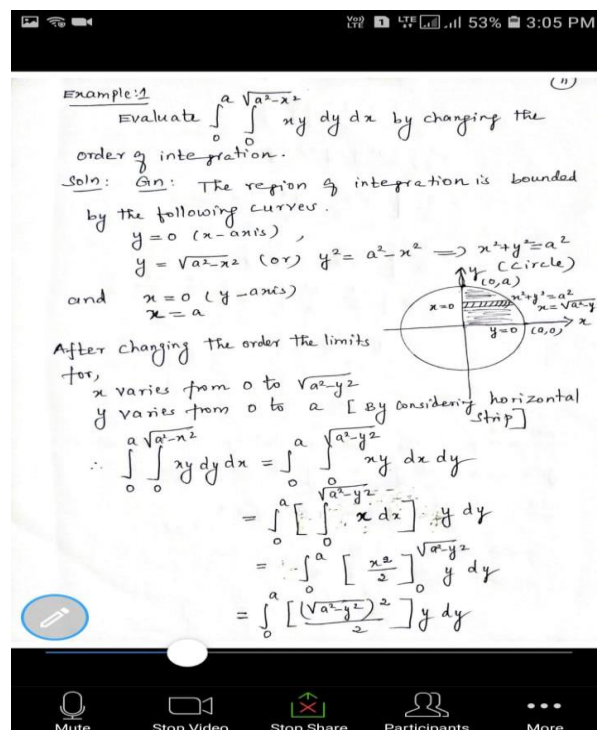 Vo)) LTE 1 LTE 53% 3:05 PM
11
Example:1
Evaluate ∫₀^a ∫₀^√(a²-x²) xy dy dx by changing the
order of integration.
Soln: Gn: The region of integration is bounded
by the following curves.
y=0 (x-axis),
y = √(a²-x²) (or) y² = a²-x² => x²+y²=a²
(circle)
and x=0 (y-axis)
x = a
y
(0,a)
x=0
x²+y²=a²
x=√(a²-y
y=0
(a,0)
x
After changing the order the limits
for,
x varies from 0 to √(a²-y²)
y varies from 0 to a [By considering horizontal
strip]
∴ ∫₀^a ∫₀^√(a²-x²) xy dy dx = ∫₀^a ∫₀^√(a²-y²) xy dx dy
= ∫₀^a [∫₀^√(a²-y²) x dx] y dy
= ∫₀^a [x²/2]₀^√(a²-y²) y dy
= ∫₀^a [(√(a²-y²))²/2] y dy
Mute Stop Video Stop Share Participants More